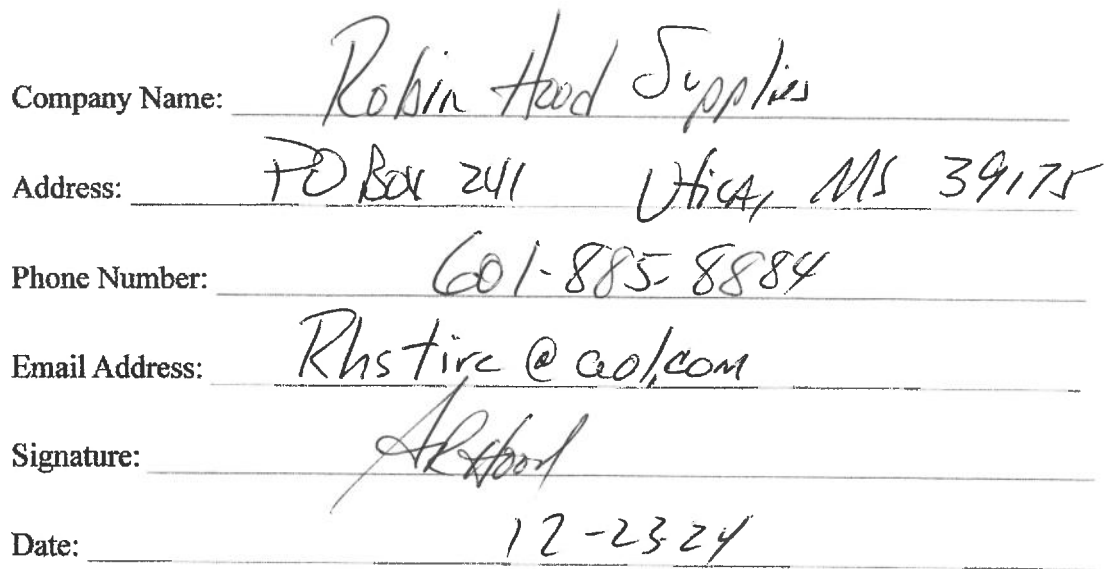 Company Name: Robin Hood Supplies
Address: PO Box 241 Utica, MS 39175
Phone Number: 601-885-8884
Email Address: Rhstire@aol.com
Signature: ARHood
Date: 12-23-24